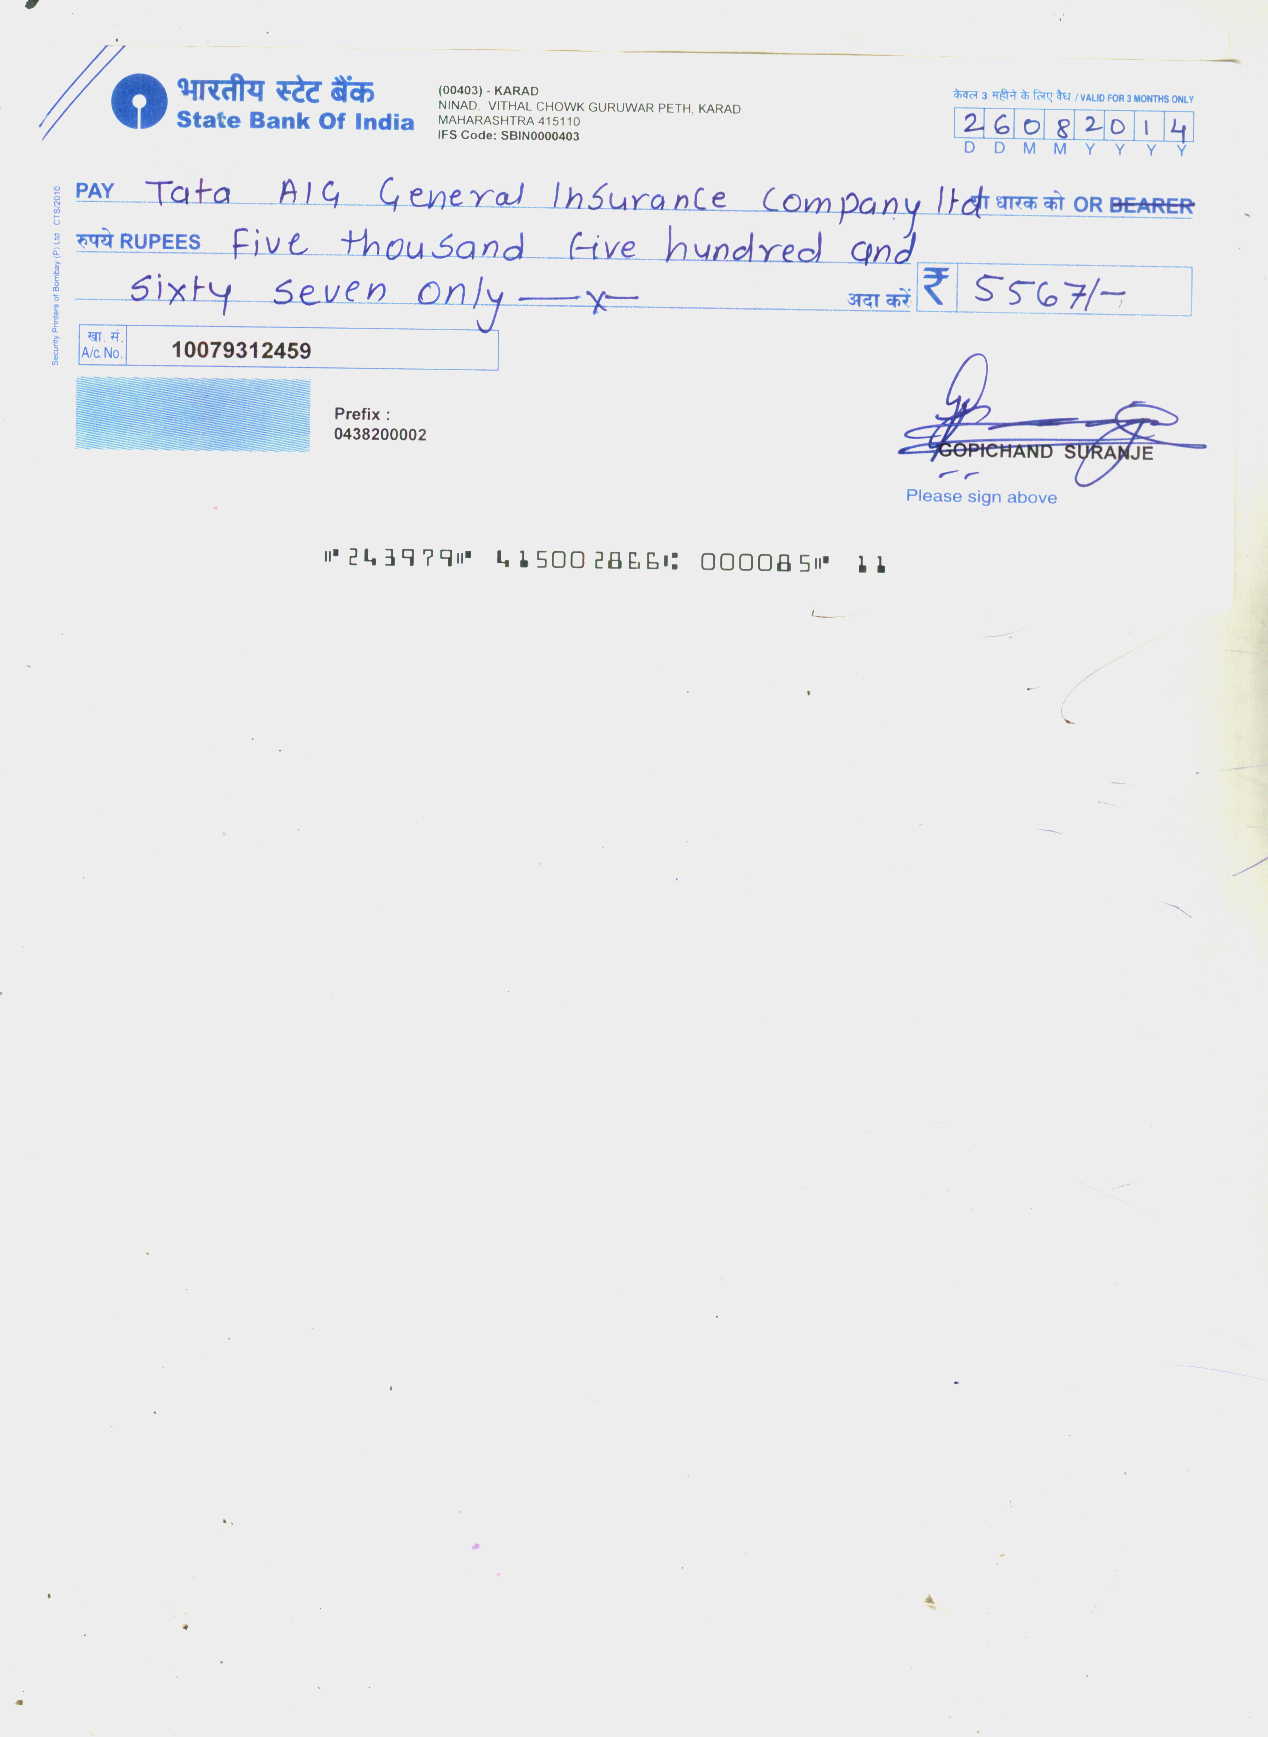 भारतीय स्टेट बैंक
State Bank Of India
(00403) - KARAD
NINAD, VITHAL CHOWK GURUWAR PETH, KARAD
MAHARASHTRA 415110
IFS Code: SBIN0000403
केवल 3 महीने के लिए वैध / VALID FOR 3 MONTHS ONLY
26082014
D D M M Y Y Y Y
PAY Tata AIG General Insurance Company ltd या धारक को OR BEARER
रुपये RUPEES Five thousand five hundred and
sixty seven only —x—
अदा करें ₹ 5567/-
खा. सं.
A/c. No. 10079312459
Prefix :
0438200002
GOPICHAND SURANJE
Please sign above
Security Printers of Bombay (P) Ltd CTS/2010
⑈243979⑈ 415002866⑆ 000085⑈ 11